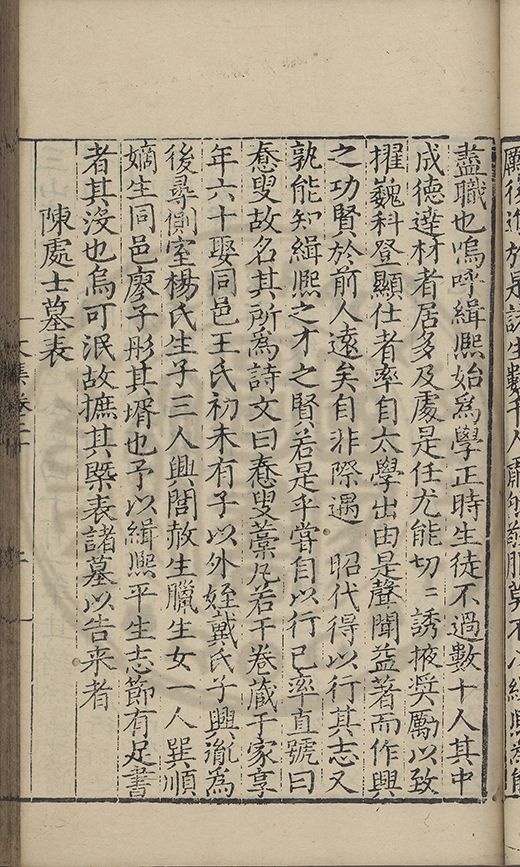 後進於是諸生數千人
盡職也嗚呼緝熙始爲學正時生徒不過數十人其中
成德達材者居多及處是任尤能切〻誘掖奨勵以致
擢巍科登顯仕者率自太學出由是聲聞益著而作興
之功賢於前人遠矣自非際遇　昭代得以行其志又
孰能知緝熙之才之賢若是乎嘗自以行已率直號曰
惷叟故名其所為詩文曰惷叟藁凡若干卷蔵于家享
年六十娶同邑王氏初未有子以外姪戴氏子興胤為
後尋側室楊氏生子三人興閭赦生臘生女一人巽順
嫡生同邑廖子彤其壻也予以緝熙平生志節有足書
者其沒也烏可泯故摭其槩表諸墓以告来者
陳處士墓表